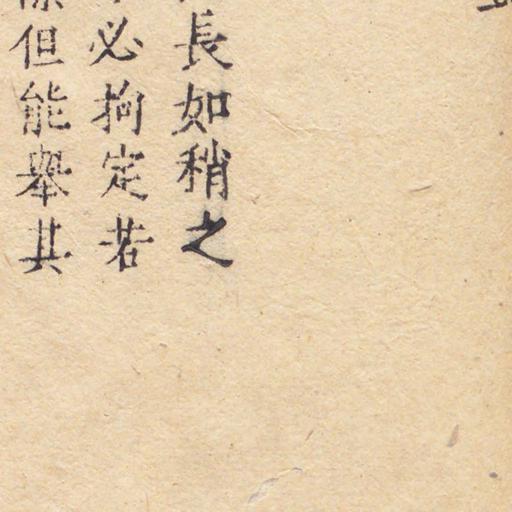 長如稍之
必拘定若
但能舉其